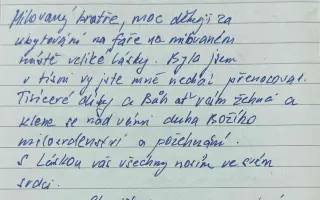 Milovaný bratře, moc děkuji za
ubytování na faře na milovaném
místě veliké Lásky. Byla jsem
v tísni vy jste mně nechal přenocovat.
Tisíceré díky a Bůh ať vám žehná a
klene se nad vámi duha Božího
milosrdenství a požehnání.
S Láskou vás všechny nosím ve svém
srdci.